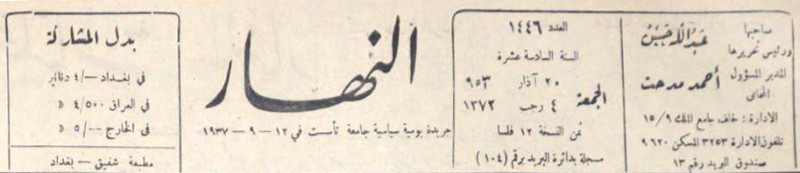 صاحبها
ورئيس تحريرها
عبد الله حسين
المدير المسؤول
المحامي
أحمد مدحت
الادارة : خلف جامع الملك ١٥/٩
تلفون الادارة ٣٢٥٣ المسكن ٩٦٢٠
صندوق البريد رقم ١٣
العدد ١٤٤٦
السنة السادسة عشرة
الجمعة
٢٠ آذار ٩٥٣
٤ رجب ١٣٧٢
ثمن النسخة ١٢ فلسا
مسجلة بدائرة البريد برقم (١٠٤)
النهار
جريدة يومية سياسية جامعة تأسست في ١٢ - ٩ - ١٩٣٧
بدل المشاركة
في بغداد ٤/— دنانير
في العراق ٤/٥٠٠ »
في الخارج ٥/— »
مطبعة شفيق - بغداد